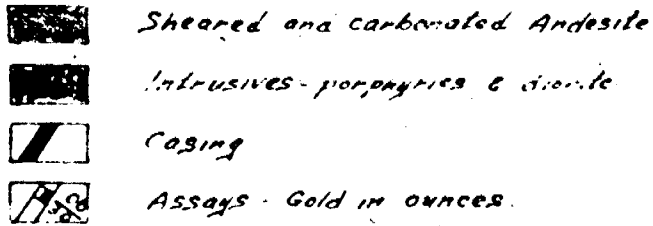 Sheared and carbonated Andesite
Intrusives - porphyries & diorite
Casing
Assays - Gold in ounces.